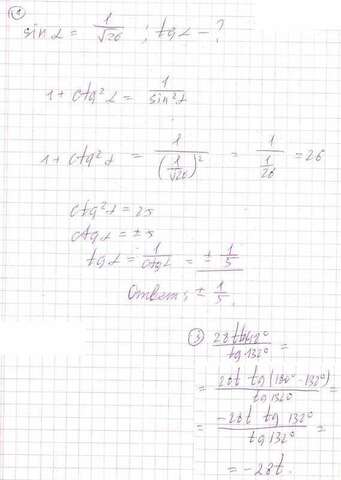 ①
sin α = 1/√26 ; tg α - ?
1 + ctg²α = 1/sin²α
1 + ctg²α = 1/(1/√26)² = 1/(1/26) = 26
ctg²α = 25
ctg α = ± 5
tg α = 1/ctg α = ± 1/5
Ответ: ± 1/5
③ 28t tg 48° / tg 132° =
= 28t tg (180° - 132°) / tg 132° =
= -28t tg 132° / tg 132° =
= -28t.